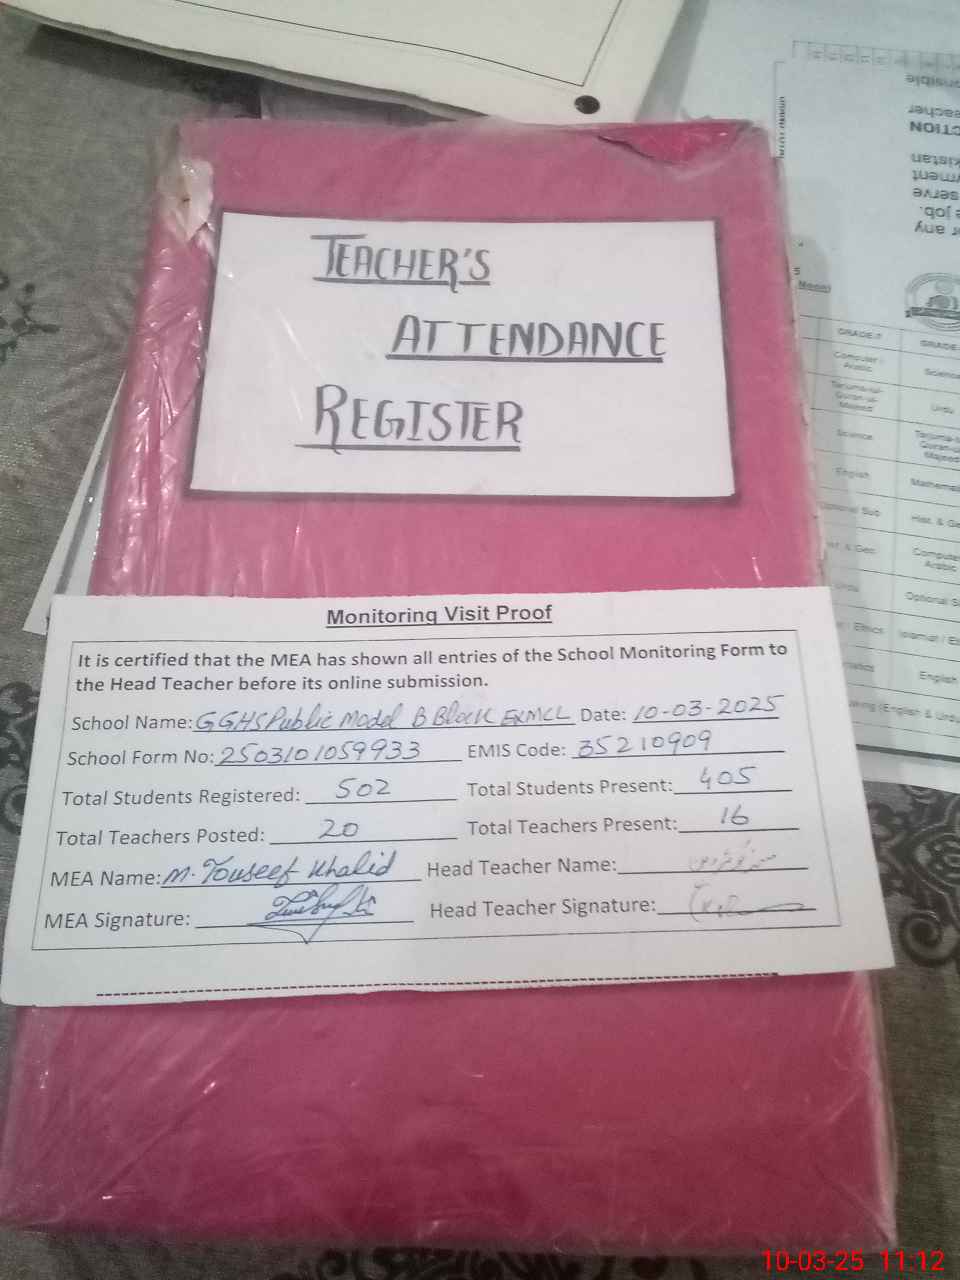 TEACHER'S
ATTENDANCE
REGISTER
Monitoring Visit Proof
It is certified that the MEA has shown all entries of the School Monitoring Form to
the Head Teacher before its online submission.
School Name: GGHS Public Model B Block EXMCL Date: 10-03-2025
School Form No: 2503101059933 EMIS Code: 35210909
Total Students Registered: 502 Total Students Present: 405
Total Teachers Posted: 20 Total Teachers Present: 16
MEA Name: M. Touseef Khalid Head Teacher Name:
MEA Signature: Head Teacher Signature:
GRADE-7
Computer /
Arabic
Urdu
Science
English
Optional Sub
English
10-03-25 11:12